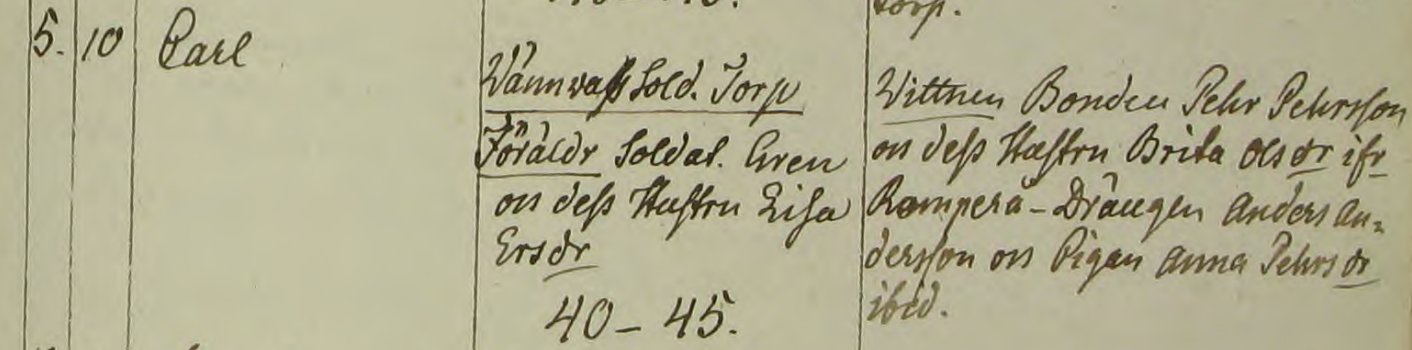 torp.
5. 10 Carl
Wännwass Sold. Torp
Föräldr Soldat. Gren
och dess Hustru Lisa
Ersdr
40 – 45.
Wittnen Bonden Pehr Pehrsson
och dess Hustru Brita Olsdr ifr
Ramperå – Drängen Anders An=
dersson och Pigan Anna Pehrsdr
ibid.